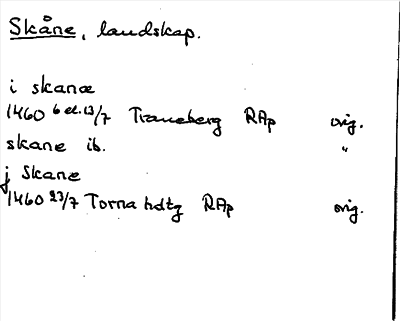 Skåne, landskap.
i skanæ
1460 6 el. 13/7 Traneberg RAp orig.
skane ib. "
j Skane
1460 23/7 Torna hdtg RAp orig.